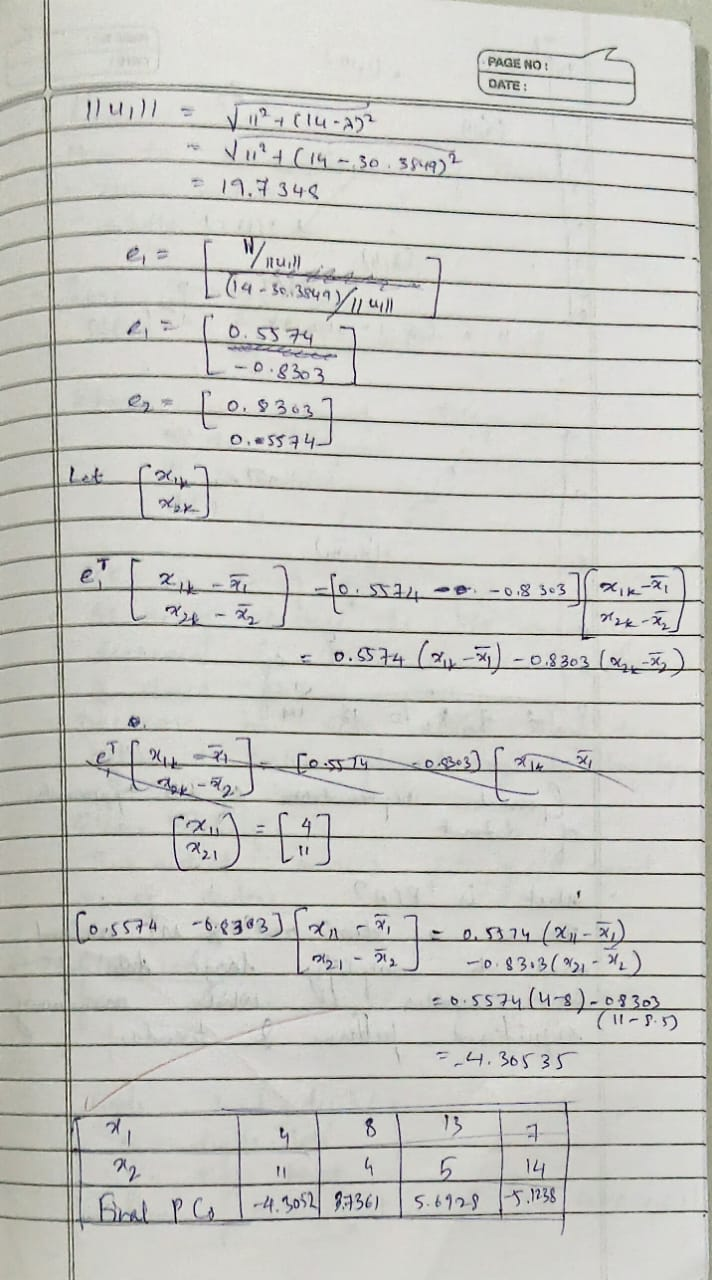 PAGE NO :
DATE :
||u₁|| = √11² + (14-λ)²
= √11² + (14 - 30.3849)²
= 19.7348
e₁ = [ 11/||u₁||
(14-30.3849)/||u₁|| ]
e₁ = [ 0.5574
-0.8303 ]
e₂ = [ 0.8303
0.5574 ]
Let [ x₁ₖ
x₂ₖ ]
e₁ᵀ [ x₁ₖ - x̄₁
x₂ₖ - x̄₂ ] = [0.5574 -0.8303] [ x₁ₖ - x̄₁
x₂ₖ - x̄₂ ]
= 0.5574 (x₁ₖ - x̄₁) - 0.8303 (x₂ₖ - x̄₂)
e₁ᵀ [ x₁ₖ - x̄₁
x₂ₖ - x̄₂ ] = [0.5574 -0.8303] [ x₁ₖ x̄₁
[ x₁₁
x₂₁ ] = [ 4
11 ]
[0.5574 -0.8303] [ x₁₁ - x̄₁
x₂₁ - x̄₂ ] = 0.5574 (x₁₁ - x̄₁)
-0.8303 (x₂₁ - x̄₂)
= 0.5574 (4-8) - 0.8303
(11-8.5)
= -4.30535
x₁ 4 8 13 7
x₂ 11 4 5 14
Final PCs -4.3052 3.7361 5.6928 -5.1238